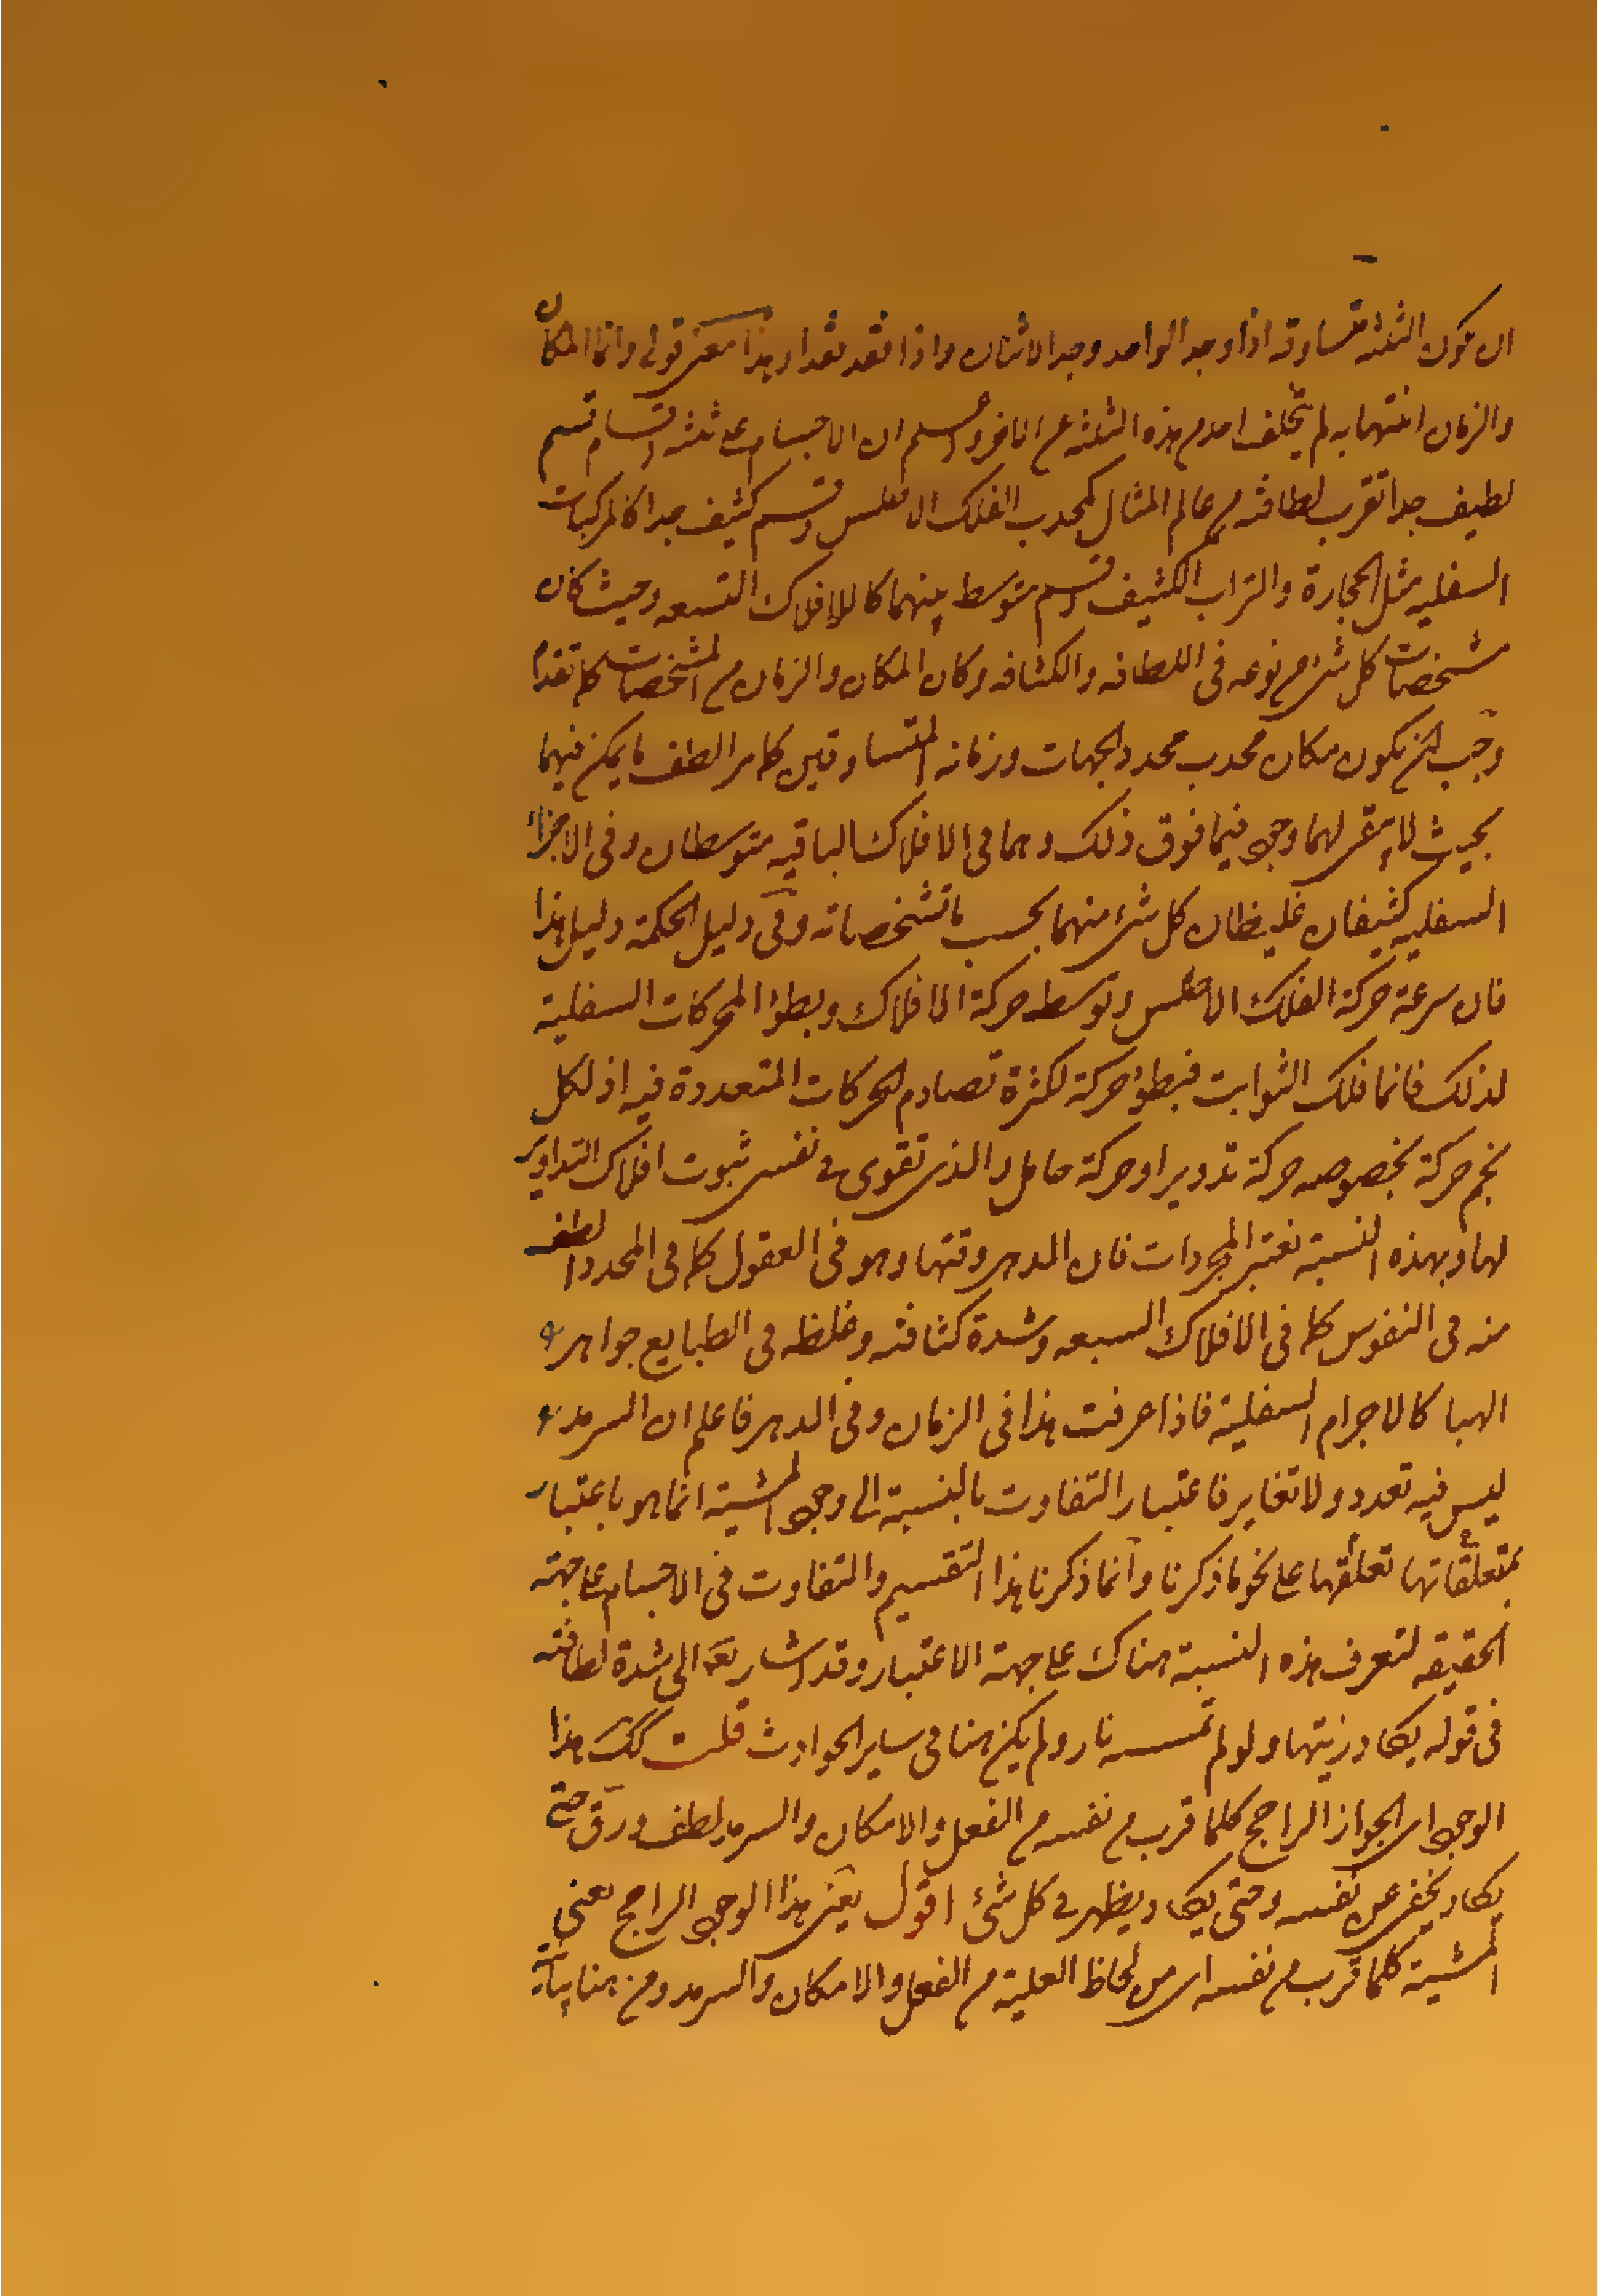 ان تكون الثلثة متساوقة اذا وجد الواحد وجد الاثنان واذا فقد فقدا وهذا معنى قولى وانما المكان
والزمان انتهيا به لم يتخلف احد من هذه الثلثة عن الاخر واعلم ان الاجسام على ثلثة اقسام قسم
لطيف جدا تقرب لطافته من عالم المثال كمحدب الفلك الاطلس وقسم كثيف جدا كالمركبات
السفليه مثل الحجارة والتراب الكثيف وقسم متوسط بينهما كالافلاك التسعه وحيث كان
مشخصات كل شئ من نوعه فى اللطافه والكثافه وكان المكان والزمان من المشخصات كما تقدم
وجب ان يكون مكان محدب محدد الجهات وزمانه المتساوقين كما مر الطف ما يمكن فيهما
بحيث لا يبقى لهما وجود فيما فوق ذلك وهما فى الافلاك الباقيه متوسطان وفى الاجزاء
السفليه كثيفان غليظان كل شئ منهما بحسب ما تشخصاته وفى دليل الحكمة دليل هذا
فان سرعة حركة الفلك الاطلس وتوسط حركة الافلاك وبطؤ المحركات السفلية
لذلك فانما فلك الثوابت فبطؤ حركة لكثرة تصادم الحركات المتعددة فيه اذ لكل
نجم حركة بخصوصه حركة تدوير او حركة حامل والذى تقوى فى نفسى ثبوت افلاك التداوير
لها وبهذه النسبة نعتبر المجردات فان الدهر وقتها وهو فى العقول كما فى المحدد الطف
منه فى النفوس كما فى الافلاك السبعه وشدة كثافته وغلظه فى الطبايع جواهر
الهبا كالاجرام السفلية فاذا عرفت هذا فى الزمان وفى الدهر فاعلم ان السرمد
ليس فيه تعدد ولا تغاير فاعتبار التفاوت بالنسبة الى وجود المشية انما هو باعتبار
بمتعلقاتها تعلقها على نحو ما ذكرنا وانما ذكرنا هذا التقسيم والتفاوت فى الاجسام على جهة
الحقيقه لتعرف هذه النسبة هناك على جهة الاعتبار وقد اشار تعالى الى شدة لطافته
فى قوله يكاد زيتها ولو لم تمسسه نار ولم يكن هنا فى ساير الحوادث قلت كك هذا
الوجود اى الجواز الراجح كلما قرب من نفسه من الفعل والامكان والسرمد لطف ورق حتى
يكاد يخفى عن نفسه وحتى يكاد يظهر فى كل شئ اقول يعنى هذا الوجود الراجح يعنى
المشية كلما قرب من نفسه اى من لحاظ العلية من الفعل والامكان والسرمد ومن هنا بيانية